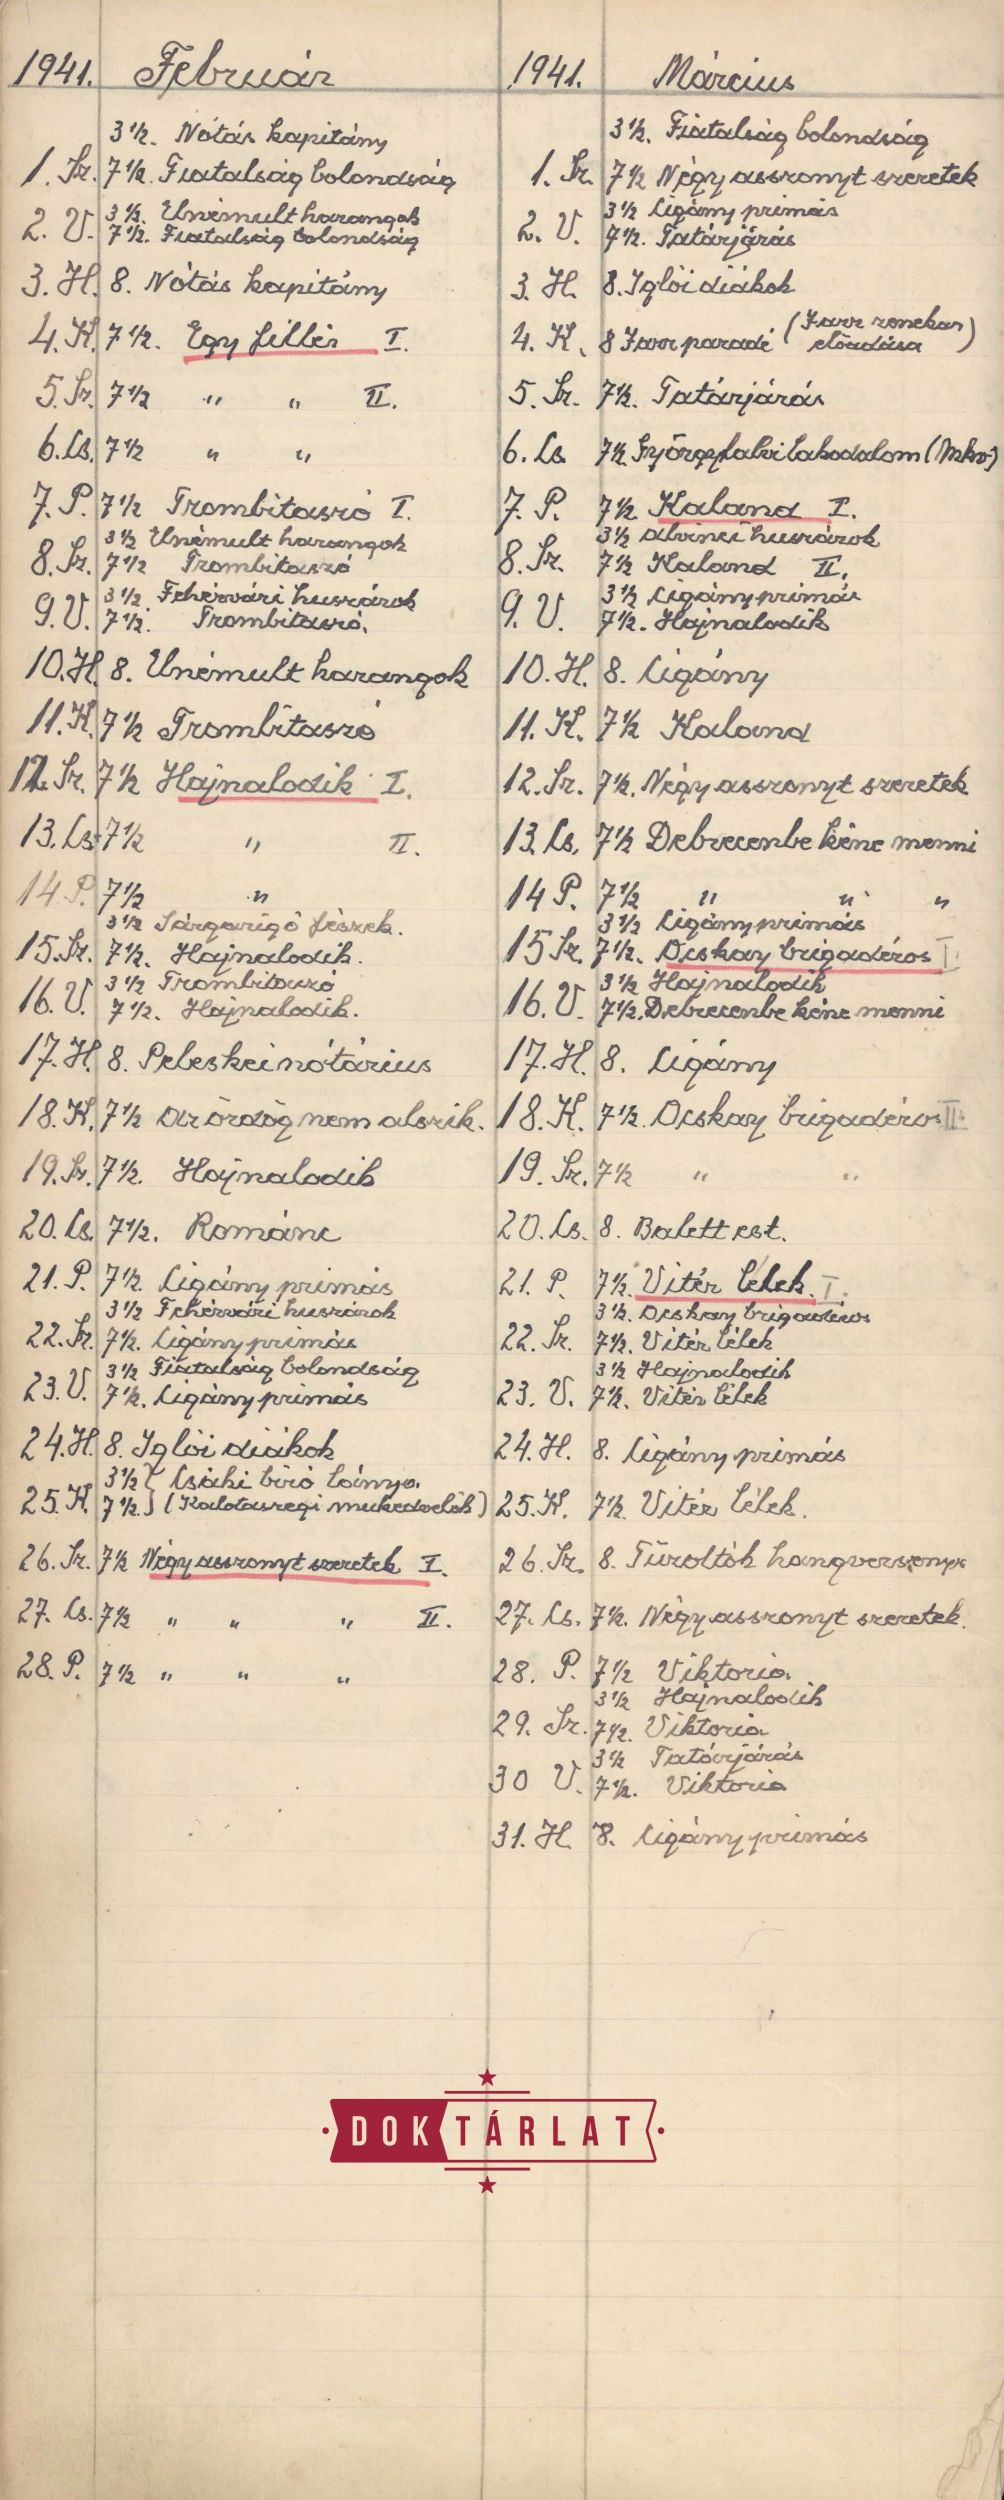 1941. Február
3 1/2. Nótás kapitány
1. Sz. 7 1/2. Fiatalság bolondság
2. V. 3 1/2. Elnémult harangok
7 1/2. Fiatalság bolondság
3. H. 8. Nótás kapitány
4. K. 7 1/2. Egy fillér I.
5. Sz. 7 1/2 " " II.
6. Cs. 7 1/2 " "
7. P. 7 1/2 Trombitaszó I.
3 1/2 Elnémult harangok
8. Sz. 7 1/2 Trombitaszó
9. V. 3 1/2. Fehérvári huszárok
7 1/2. Trombitaszó.
10. H. 8. Elnémult harangok
11. K. 7 1/2 Trombitaszó
12. Sz. 7 1/2 Hajnalodik I.
13. Cs. 7 1/2 " II.
14. P. 7 1/2 "
3 1/2 Sárgarigó fészek.
15. Sz. 7 1/2. Hajnalodik.
16. V. 3 1/2 Trombitaszó
7 1/2. Hajnalodik.
17. H. 8. Peleskei nótárius
18. K. 7 1/2 Az ördög nem alszik.
19. Sz. 7 1/2. Hajnalodik
20. Cs. 7 1/2. Románc
21. P. 7 1/2. Cigány primás
3 1/2 Fehérvári huszárok
22. Sz. 7 1/2. Cigány primás
23. V. 3 1/2 Fiatalság bolondság
7 1/2. Cigány primás
24. H. 8. Iglói diákok
25. K. 3 1/2 } Csáki biró lánya.
7 1/2. } (Kalotaszegi műkedvelők)
26. Sz. 7 1/2 Négy asszonyt szeretek I.
27. Cs. 7 1/2 " " " II.
28. P. 7 1/2 " " "
1941. Március
3 1/2. Fiatalság bolondság
1. Sz. 7 1/2 Négy asszonyt szeretek
2. V. 3 1/2 Cigány primás
7 1/2. Tatárjárás
3. H. 8. Iglói diákok
4. K. 8 Jazz paradé (Jazz zenekar előadása)
5. Sz. 7 1/2. Tatárjárás
6. Cs. 7 1/2. Györgyfalvi lakodalom (Mkv.)
7. P. 7 1/2 Kaland I.
3 1/2 Alvinci huszárok
8. Sz. 7 1/2 Kaland II.
9. V. 3 1/2 Cigány primás
7 1/2. Hajnalodik
10. H. 8. Cigány
11. K. 7 1/2 Kaland
12. Sz. 7 1/2. Négy asszonyt szeretek
13. Cs. 7 1/2 Debrecenbe kéne menni
14 P. 7 1/2 " " "
3 1/2 Cigány primás
15 Sz. 7 1/2. Ocskay brigadéros I.
16. V. 3 1/2 Hajnalodik
7 1/2. Debrecenbe kéne menni
17. H. 8. Cigány
18. K. 7 1/2. Ocskay brigadéros II.
19. Sz. 7 1/2 " "
20. Cs. 8. Balett est.
21. P. 7 1/2. Vitéz lélek. I.
3 1/2. Ocskay brigadéros
22. Sz. 7 1/2. Vitéz lélek
3 1/2 Hajnalodik
23. V. 7 1/2. Vitéz lélek
24. H. 8. Cigány primás
25. K. 7 1/2. Vitéz lélek.
26 Sz. 8. Tűzoltók hangversenye
27. Cs. 7 1/2. Négy asszonyt szeretek.
28. P. 7 1/2 Viktoria.
3 1/2 Hajnalodik
29. Sz. 7 1/2. Viktoria
3 1/2 Tatárjárás
30 V. 7 1/2. Viktoria
31. H 8. Cigány primás
DOKTÁRLAT